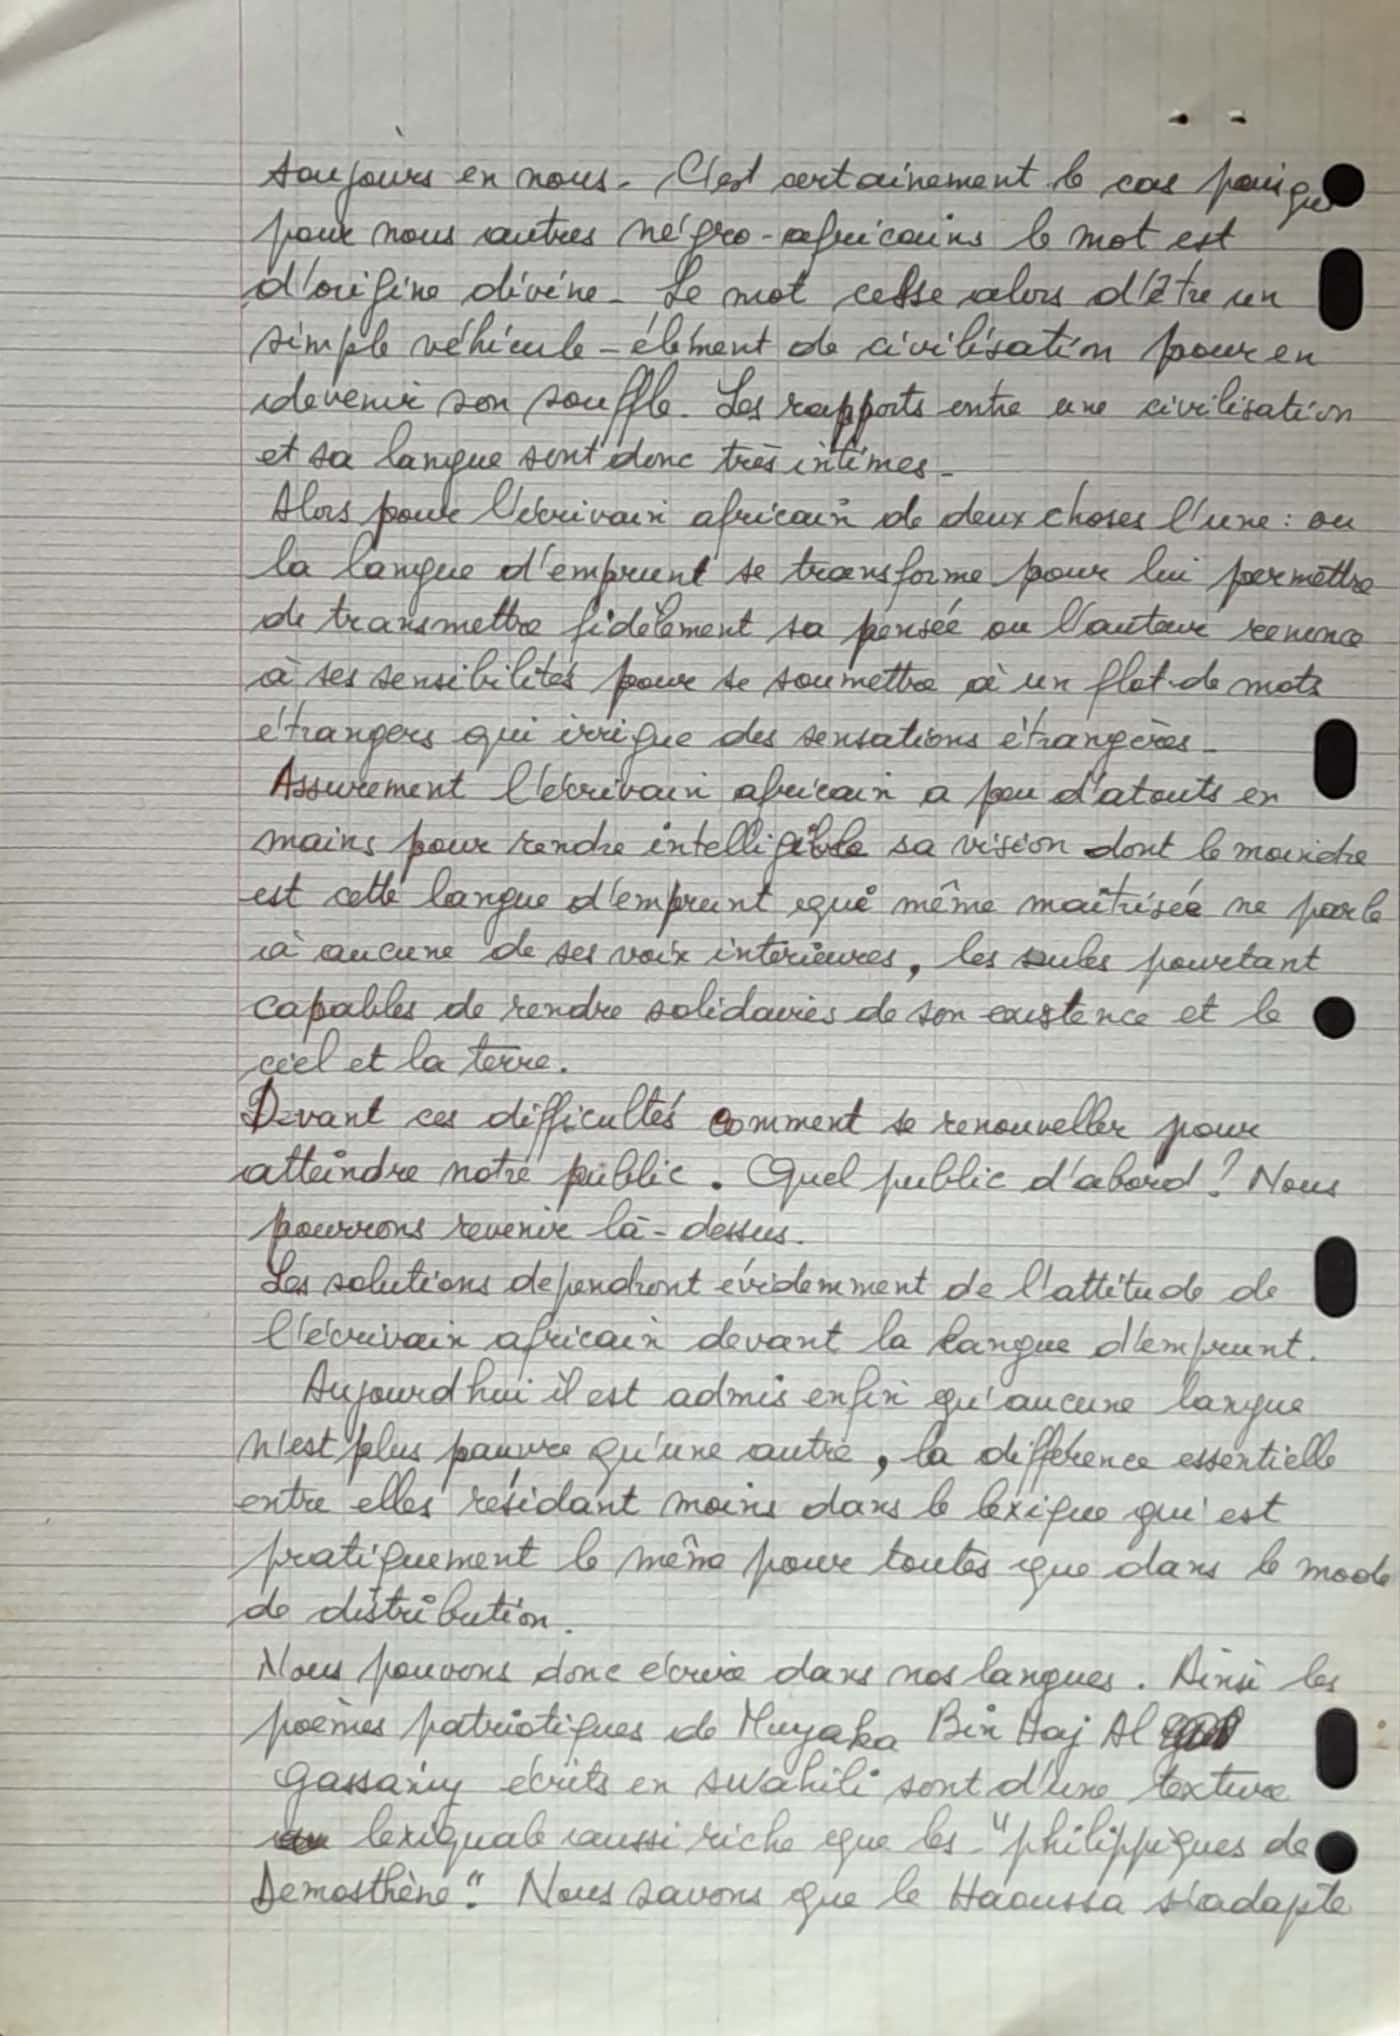 toujours en nous - C'est certainement le cas puisque
pour nous autres négro-africains le mot est
d'origine divine - Le mot cesse alors d'être un
simple véhicule - élément de civilisation pour en
devenir son souffle. Les rapports entre une civilisation
et sa langue sont donc très intimes -
Alors pour l'écrivain africain de deux choses l'une : ou
la langue d'emprunt se transforme pour lui permettre
de transmettre fidèlement sa pensée ou l'auteur renonce
à ses sensibilités pour se soumettre à un flot de mots
étrangers qui irrigue des sensations étrangères -
Assurement l'écrivain africain a peu d'atouts en
mains pour rendre intelligible sa vision dont le moindre
est cette langue d'emprunt que même maîtrisée ne parle
à aucune de ses voix interieures, les sules pourtant
capables de rendre solidaires de son existence et le
ciel et la terre.
Devant ces difficultés comment se renouveller pour
atteindre notre public. Quel public d'abord ? Nous
pourrons revenir là-dessus.
Les solutions dependront évidemment de l'attitude de
l'écrivain africain devant la langue d'emprunt.
Aujourd'hui il est admis enfin qu'aucune langue
n'est plus pauvre qu'une autre, la différence essentielle
entre elles résidant moins dans le lexique qui est
pratiquement le même pour toutes que dans le mode
de distribution.
Nous pouvons donc écrire dans nos langues. Ainsi les
poèmes patriotiques de Muyaka Bin Haj Al
Gassaniy écrits en swahili sont d'une texture
lexiquale aussi riche que les "philippiques de
Demosthène". Nous savons que le Haoussa s'adapte